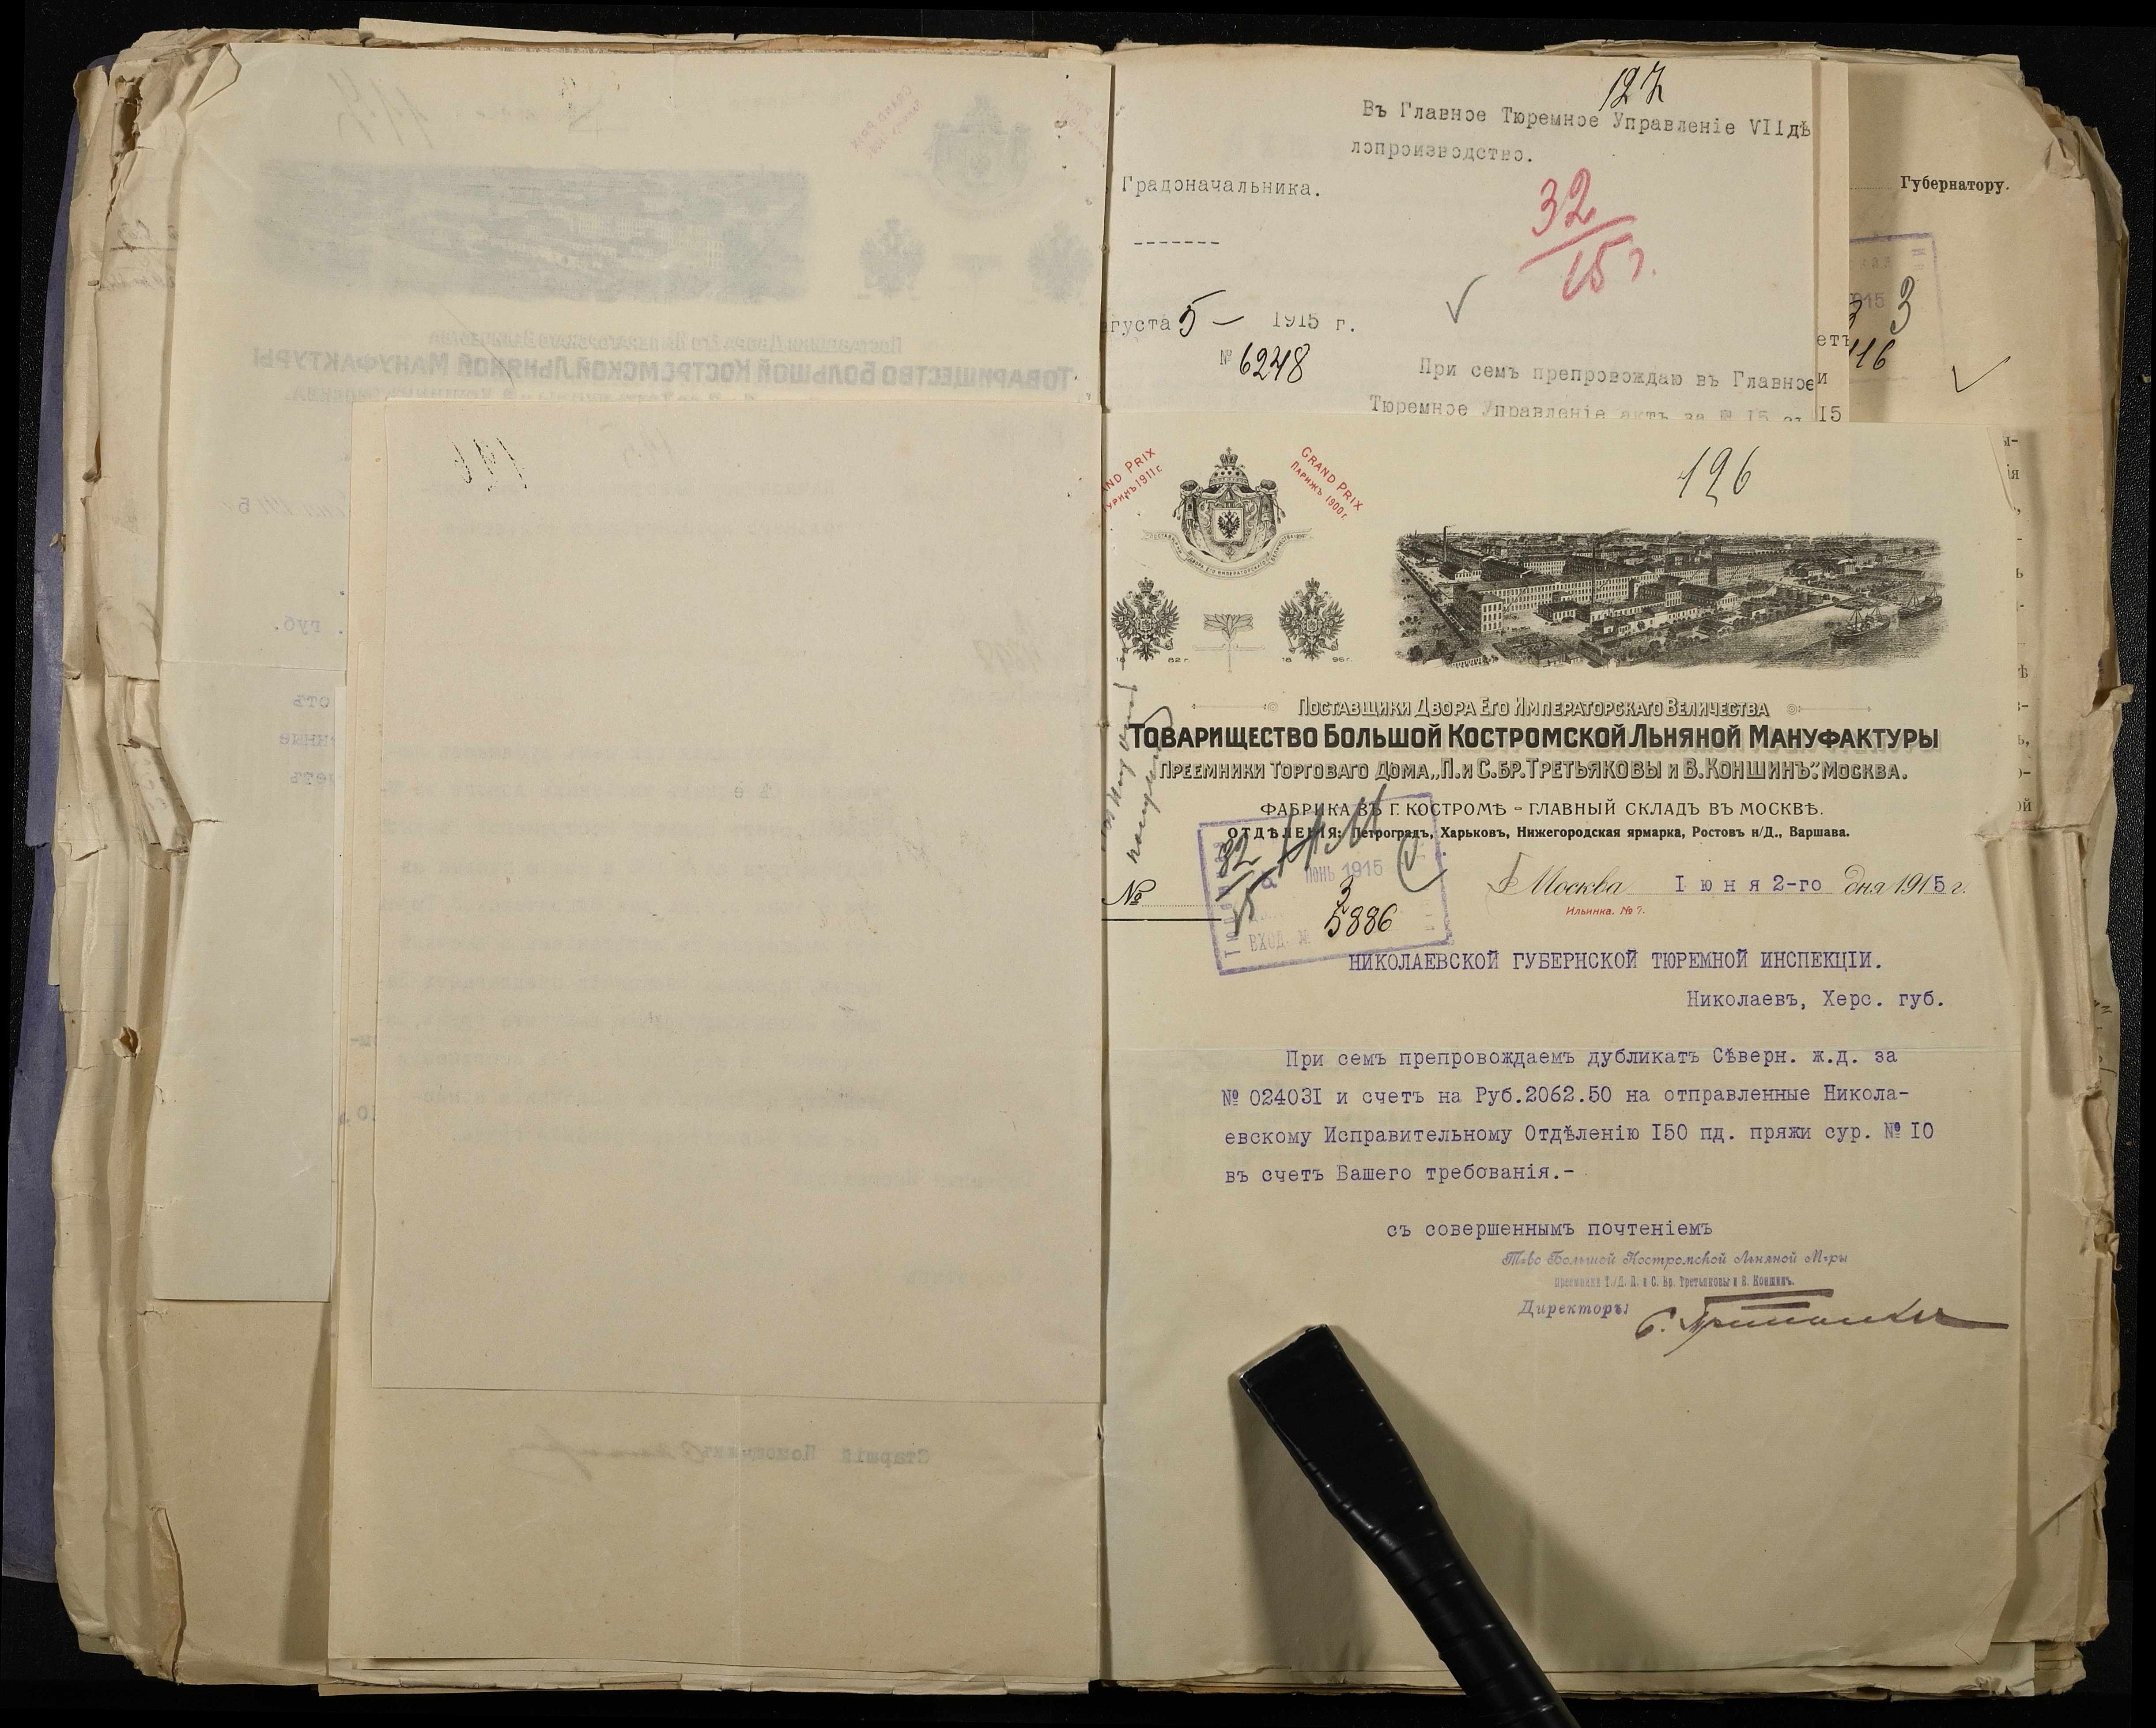 127
Въ Главное Тюремное Управленіе VII дѣ
лопроизводство.
Градоначальника.
32
15 г.
густа 5 — 1915 г.
№ 6248
При семъ препровождаю въ Главное
Тюремное Управленіе актъ за № I5
Губернатору.
3
116
126
GRAND PRIX
ПАРИЖЪ 1900 г.
AND PRIX
УРИНЪ 1911 г.
82 г.
18 96 г.
Поставщики Двора Его Императорскаго Величества
Товарищество Большой Костромской Льняной Мануфактуры
Преемники Торговаго Дома „П. и С. бр. Третьяковы и В. Коншинъ“. Москва.
ФАБРИКА ВЪ Г. КОСТРОМѢ - ГЛАВНЫЙ СКЛАДЪ ВЪ МОСКВѢ.
ОТДѢЛЕНІЯ: Петроградъ, Харьковъ, Нижегородская ярмарка, Ростовъ н/Д., Варшава.
32
15
ІЮНЬ 1915
3
ВХОД. № 5886
№
Москва Iюня 2-го дня 1915 г.
Ильинка. № 7.
НИКОЛАЕВСКОЙ ГУБЕРНСКОЙ ТЮРЕМНОЙ ИНСПЕКЦІИ.
Николаевъ, Херс. губ.
При семъ препровождаемъ дубликатъ Сѣверн. ж.д. за
№ 02403I и счетъ на Руб.2062.50 на отправленные Никола-
евскому Исправительному Отдѣленію I50 пд. пряжи сур. № I0
въ счетъ Вашего требованія.-
съ совершеннымъ почтеніемъ
Т-во Большой Костромской Льняной М-ры
преемники Т./Д. П. и С. Бр. Третьяковы и В. Коншинъ.
Директоръ:
Старшій Помощникъ